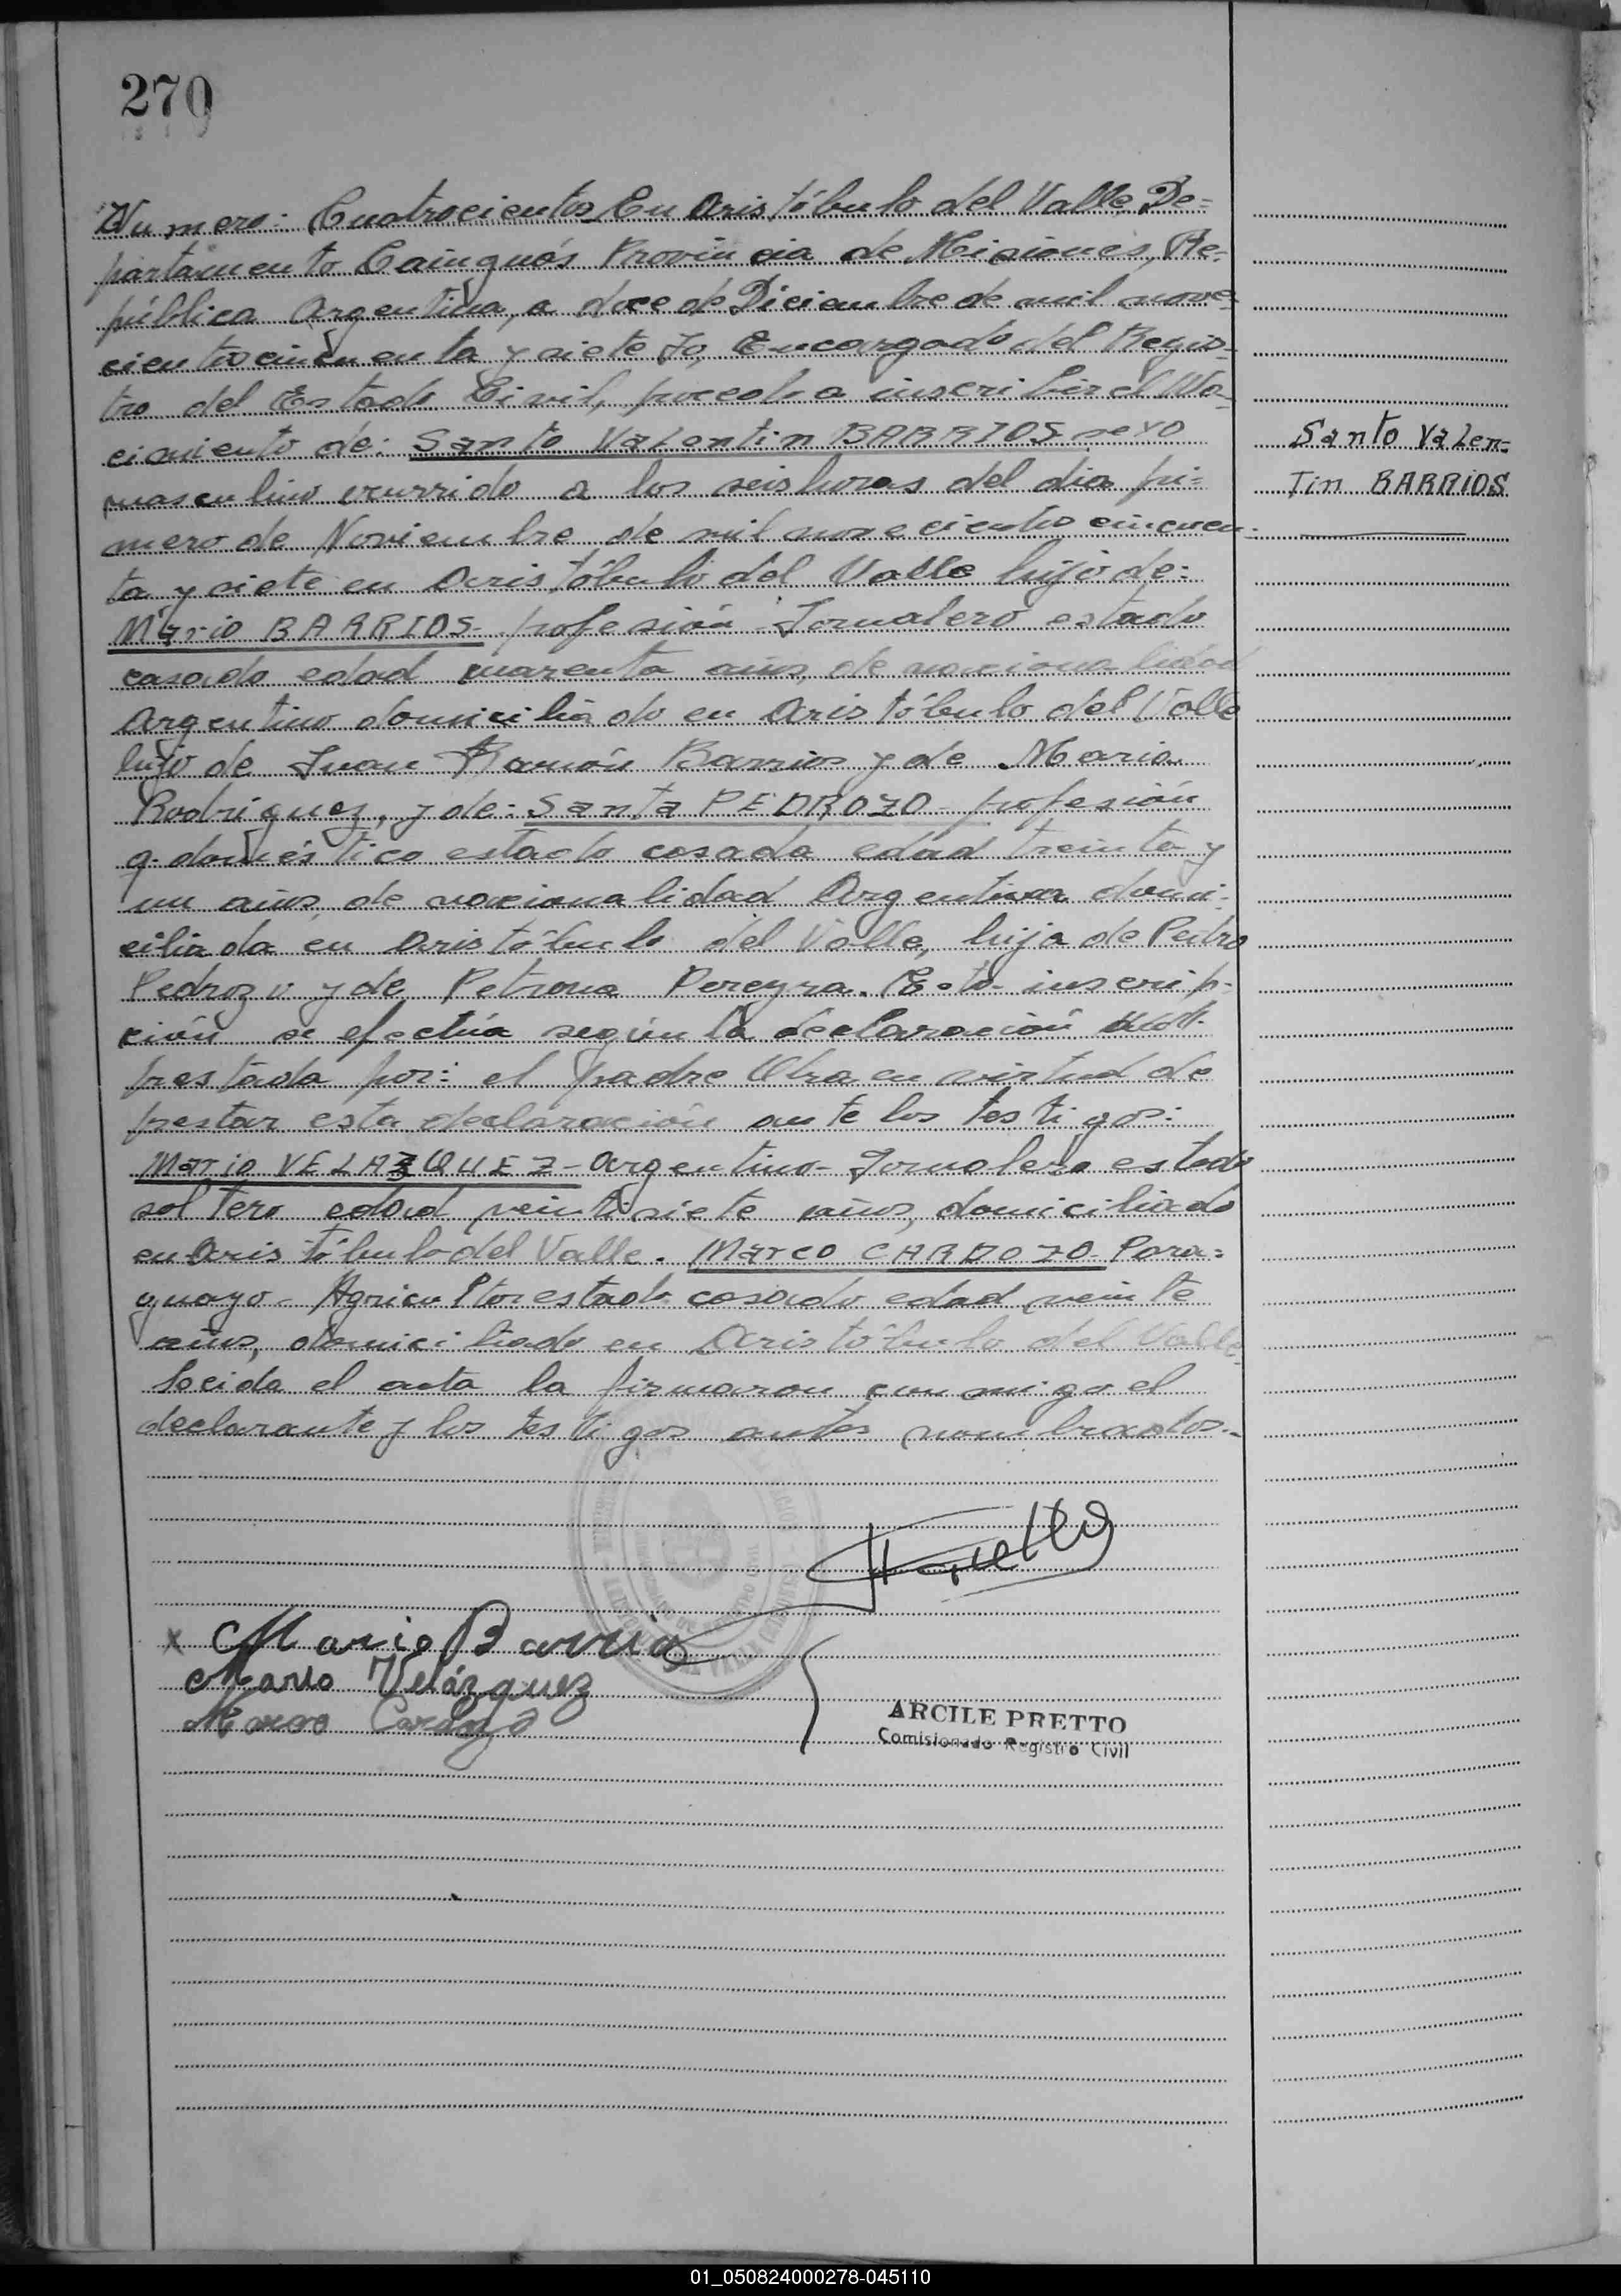 270
Numero: Cuatrocientos En Aristóbulo del Valle De=
partamento Cainguás Provincia de Misiones, Re-
pública Argentina, a doce de Diciembre de mil nove-
cientos cincuenta y siete Yo, Encargado del Regis-
tro del Estado Civil, procedo a inscribir el Na-
cimiento de: Santo Valentin BARRIOS sexo
Santo Valen=
masculino ocurrido a las seis horas del dia pri=
tin BARRIOS
mero de Noviembre de mil novecientos cincuen-
ta y siete en Aristóbulo del Valle hijo de:
Mario BARRIOS- profesión Jornalero estado
casado edad cuarenta años, de nacionalidad
Argentino domiciliado en Aristóbulo del Valle
hijo de Juan Ramón Barrios y de Maria
Rodriguez, y de: Santa PEDROZO- profesión
q. doméstico estado casada edad treinta y
un años, de nacionalidad Argentina domi-
ciliada en Aristóbulo del Valle, hija de Pedro
Pedrozo y de Petrona Pereyra. Esta inscrip-
ción se efectúa según la declaración
prestada por: el padre Obra en virtud de
prestar esta declaración ante los testigos:
Mario VELAZQUEZ- Argentino- Jornalero estado
soltero edad veintisiete años, domiciliado
en Aristóbulo del Valle. Marco CARDOZO- Para=
guayo- Agricultor estado casado edad veinte
años, domiciliado en Aristóbulo del Valle
Leida el acta la firmaron conmigo el
declarante y los testigos antes nombrados.-
x Mario Barrios
Mario Velázquez
Marco Cardozo
ARCILE PRETTO
Comisionado Registro Civil
01_050824000278-045110